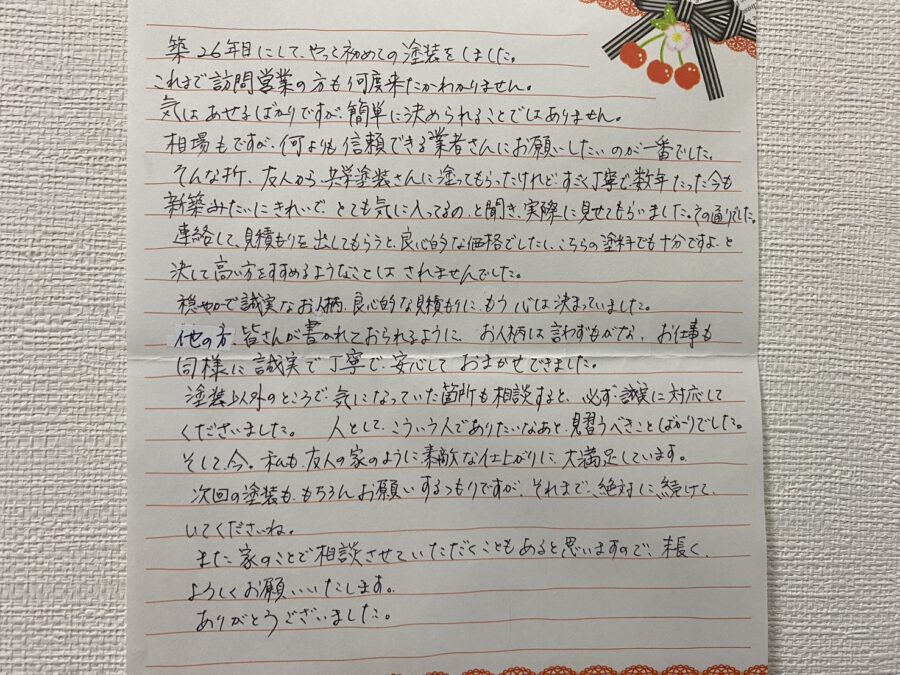 築26年目にして、やっと初めての塗装をしました。
これまで訪問営業の方も何度来たかわかりません。
気はあせるばかりですが、簡単に決められることではありません。
相場もですが、何よりも信頼できる業者さんにお願いしたいのが一番でした。
そんな折、友人から、共栄塗装さんに塗ってもらったけれど、すごく丁寧で数年たった今も
新築みたいにきれいで、とても気に入ってるの、と聞き、実際に見せてもらいました。その通りでした。
連絡して、見積もりを出してもらうと、良心的な価格でしたし、こちらの塗料でも十分ですよ、と
決して高い方をすすめるようなことはされませんでした。
穏やかで誠実なお人柄、良心的な見積もりに、もう心は決まっていました。
他の方、皆さんが書かれておられるように、お人柄は言わずもがな、お仕事も
同様に誠実で丁寧で、安心しておまかせできました。
塗装以外のところで、気になっていた箇所も相談すると、必ず誠実に対応して
くださいました。 人として、こういう人でありたいなあと、見習うべきことばかりでした。
そして、今。私も、友人の家のように素敵な仕上がりに、大満足しています。
次回の塗装も、もちろんお願いするつもりですが、それまで、絶対に続けて、
いてくださいね。
また家のことで相談させていただくこともあると思いますので、末長く、
よろしくお願いいたします。
ありがとうございました。